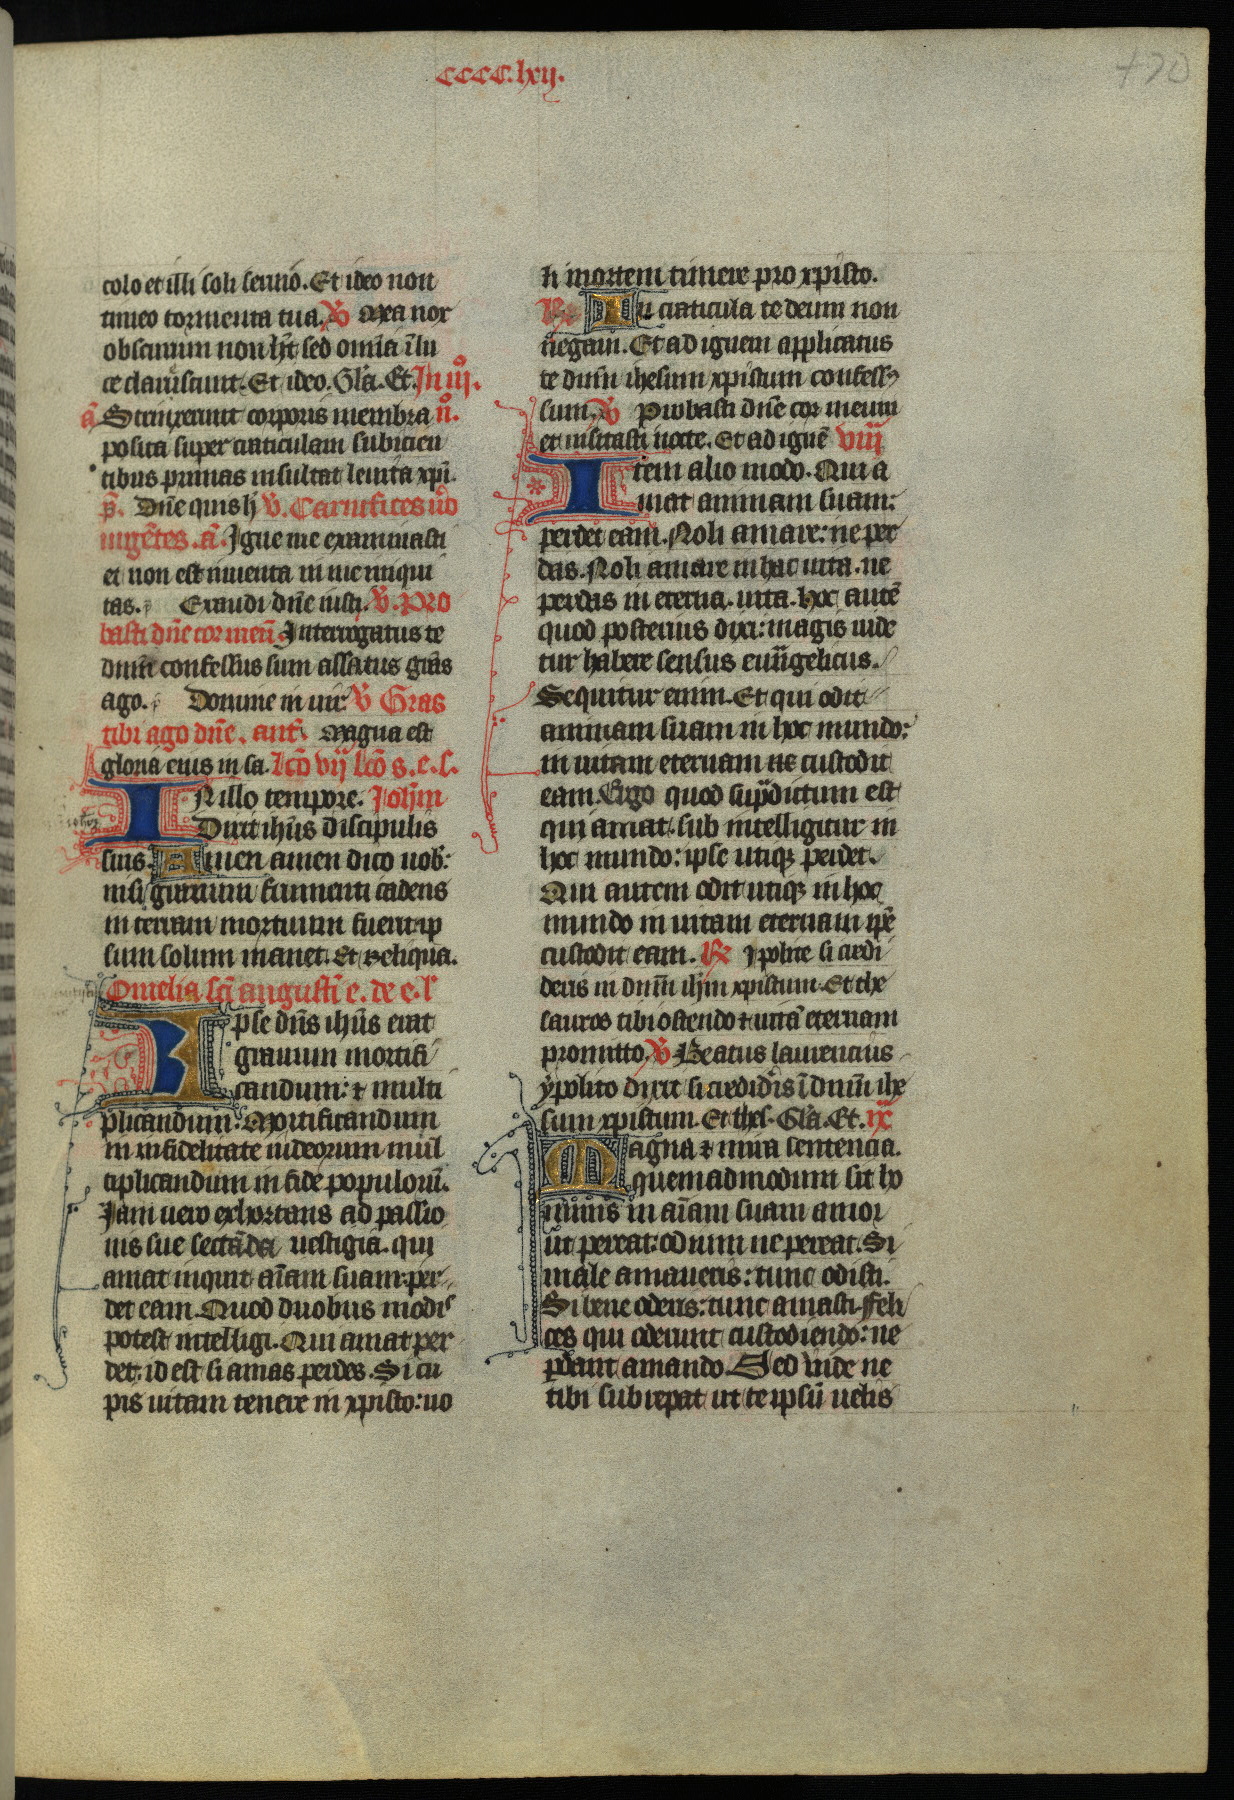 cccc.lxij.
470
colo et illi soli seruio. Et ideo non
timeo tormenta tua. V Mea nox
obscurum non h̄t sed omīa ī lu
ce clarescunt. Et ideo. Gl̄a. Et. In iij.
ā Strinxerunt corporis membra n̊.
posita super craticulam subicien
tibus prunas insultat leuita xp̄i.
p̄. Dn̄e quis h̄ V. Carnifices ůo
urgētes. ā. Igne me examinasti
et non est inuenta in me iniqui
tas. Exaudi dn̄e iusti. V. Pro
basti dn̄e cor meū. Interrogatus te
dn̄m confessus sum assatus gr̄as
ago. Domine in uir. V Gr̄as
tibi ago dn̄e. ant̄. Magna est
gloria eius in sa. Lc̄o vij lc̄o s. e. s.
IN illo tempore. Ioh̄m
Dixit ih̄us discipulis
suis. Amen amen dico uob:
nisi granum frumenti cadens
in terram mortuum fuerit ip
sum solum manet. Et reliqua.
Omelia sc̄i augustī e. de e. l'
Ipse dn̄s ih̄us erat
granum mortifi
candum: et multi
plicandum: Mortificandum
in infidelitate iudeorum mul
tiplicandum in fide populorū.
Iam uero exhortans ad passio
nis sue sectāda uestigia. qui
amat inquit aīam suam: per
det eam. Quod duobus modis
potest intelligi. Qui amat per
det: id est si amas perdes. Si cu
pis uitam tenere in xpisto: no
li mortem timere pro xpisto.
R In craticula te deum non
negaui. Et ad ignem applicatus
te dn̄m ihesum xpistum confess
sum. V Probasti dn̄e cor meum
et uisitasti nocte. Et ad ignē viij
Item alio modo. Qui a
mat animam suam:
perdet eam. Noli amare: ne per
das. Noli amare in hac uita. ne
perdas in eterna. uita. hoc autē
quod posterius dixi: magis uide
tur habere sensus euūgelicus.
Sequitur enim. Et qui odit
animam suam in hoc mundo:
in uitam eternam custodit
eam. Ergo quod sup̄dictum est
qui amat. sub intelligitur in
hoc mundo: ipse utiq; perdet.
Qui autem odit utiq; in hoc
mundo in uitam eternam ip̄e
custodit eam. R Ypolite si credi
deris in dn̄m ih̄m xpistum. Et the
sauros tibi ostendo et uitā eternam
promitto. V Beatus laurencius
ypolito dixit si credid̄is ī dn̄m ihe
sum xpistum. Et thes. Gl̄a. Et. ix
Magna et mira sentencia.
quemadmodum sit ho
minis in aīam suam amor
ut pereat: odium ne pereat. Si
male amaueris: tunc odisti.
Si bene oderis: tunc amasti. Feli
ces qui oderunt custodiendo: ne
p̄dant amando. Sed uide ne
tibi subrepat ut te ipsū uelis